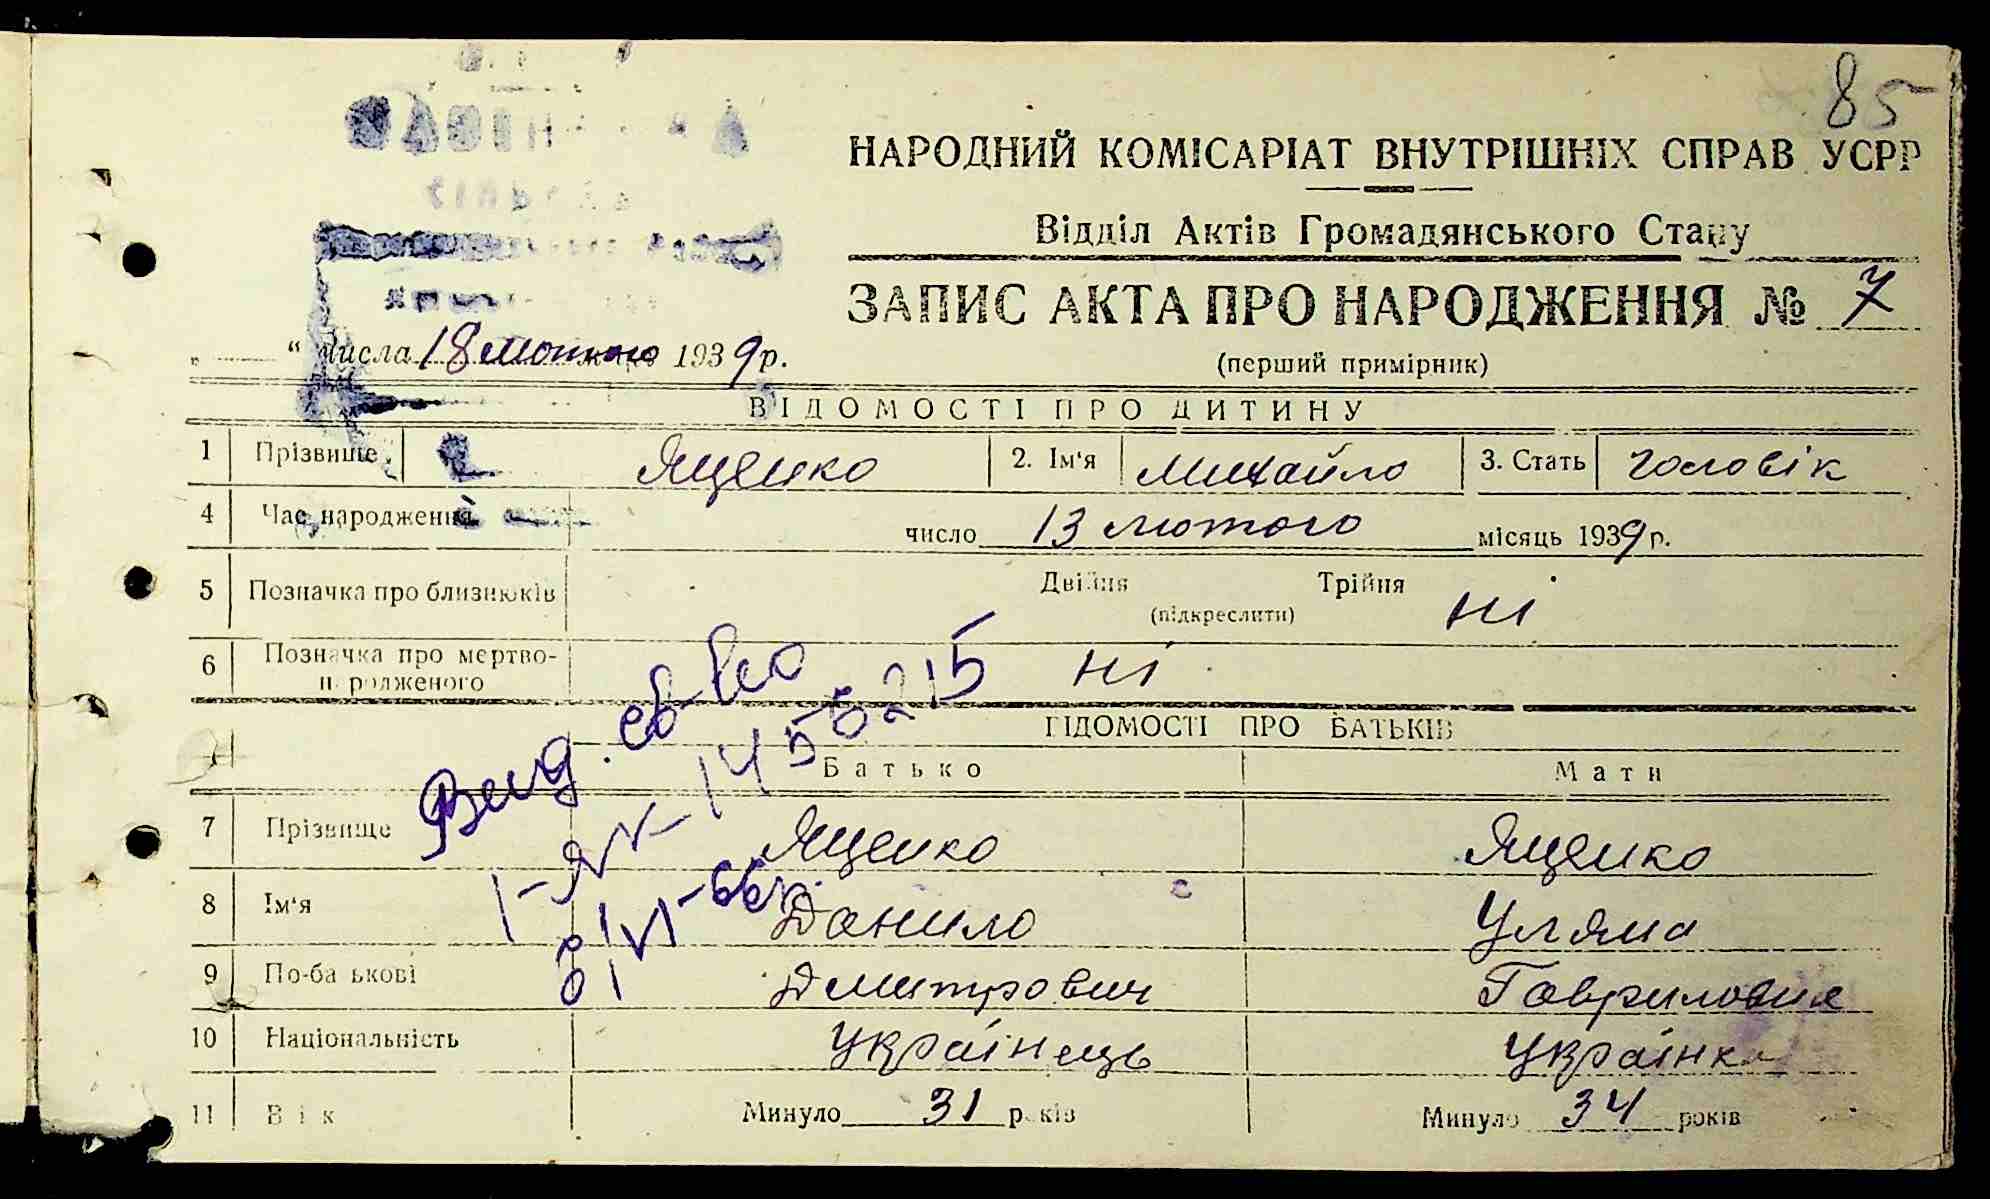 85
НАРОДНИЙ КОМІСАРІАТ ВНУТРІШНІХ СПРАВ УСРР
Відділ Актів Громадянського Стану
ЗАПИС АКТА ПРО НАРОДЖЕННЯ № 7
„ “ числа 18 лютого 1939 р.
(перший примірник)
ВІДОМОСТІ ПРО ДИТИНУ
1 Прізвище Ященко 2. Ім'я Михайло 3. Стать чоловік
4 Час народження число 13 лютого місяць 1939 р.
5 Позначка про близнюків Двійня Трійня ні
(підкреслити)
6 Позначка про мертво- ні
народженого
ВІДОМОСТІ ПРО БАТЬКІВ
Батько Мати
7 Прізвище Ященко Ященко
8 Ім'я Данило Уляна
9 По-батькові Дмитрович Гавриловна
10 Національність Українець Українка
11 Вік Минуло 31 років Минуло 34 років
Выд. св-во